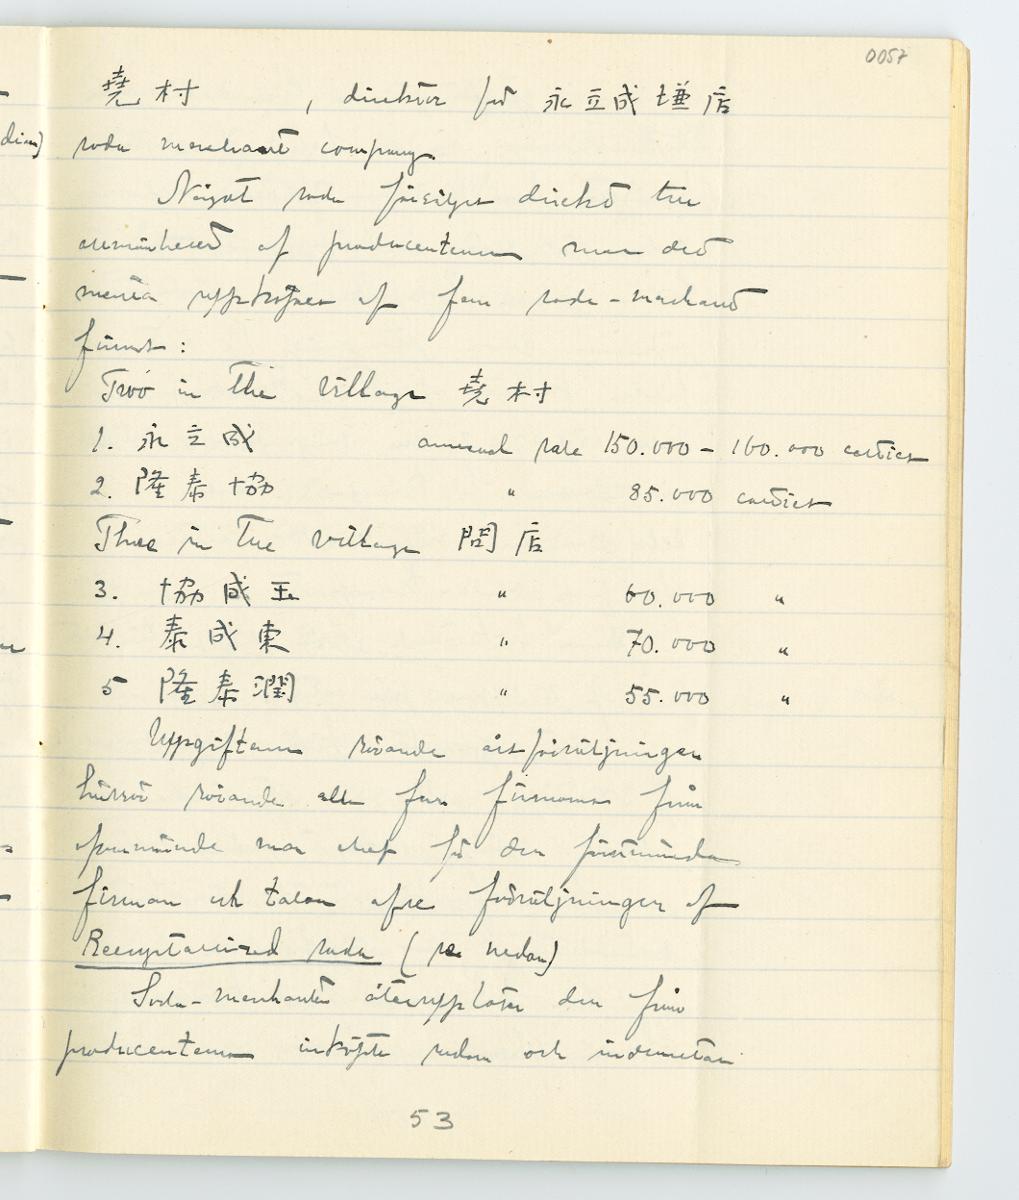 0057
堯村 , direktör för 永立成堿店
soda merchant company
Något soda försäljes direkt till
allmänheten af producenterna men det
mesta uppköpes af fem soda-merchant
firmor:
Two in the village 堯村
1. 永立成 annual sale 150.000 - 160.000 catties
2. 隆泰協 " 85.000 catties
Three in the village 閆店
3. 協成玉 " 60.000 "
4. 泰成東 " 70.000 "
5 隆泰潤 " 55.000 "
Uppgifterna rörande årsförsäljningen
härrör rörande alla fem firmorna från
ofvannämnde man chef för den förstnämnda
firman och talen afse försäljningen af
Recrystallized soda (se nedan)
Soda-merchants återupplöser den från
producenterna inköpta sodan och
53